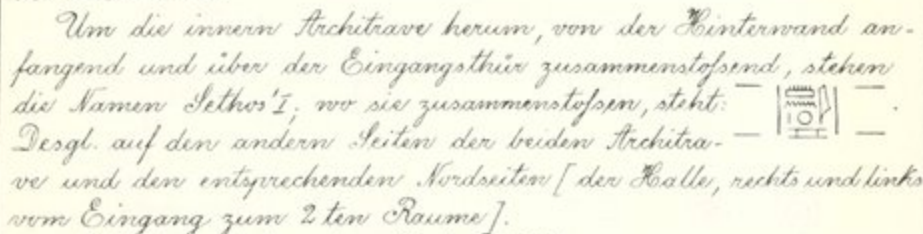 Um die innern Architrave herum, von der Hinterwand an-
fangend und über der Eingangsthür zusammenstoßend, stehen
die Namen Sethos' I; wo sie zusammenstoßen, steht:
Desgl. auf den andern Seiten der beiden Architra-
ve und den entsprechenden Nordseiten [der Halle, rechts und links
vom Eingang zum 2ten Raume].